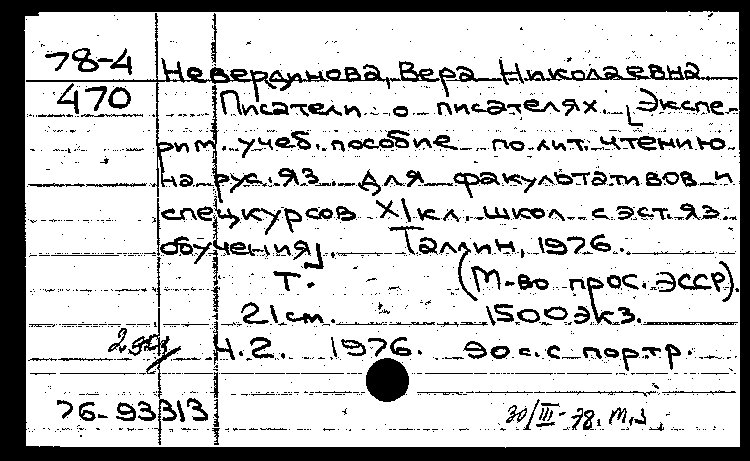 78-4 Невердинова, Вера Николаевна
470 Писатели о писателях. [Экспе-
рим. учеб. пособие по лит. чтению
на рус. яз. для факультативов и
спецкурсов XI кл. школ с эст. яз.
обучения]. Таллин, 1976.
Т. (М-во прос. ЭССР).
21 см. 1500 экз.
Ч. 2. 1976. 90 с. с портр.
76-93313 30/III-78. М.З.